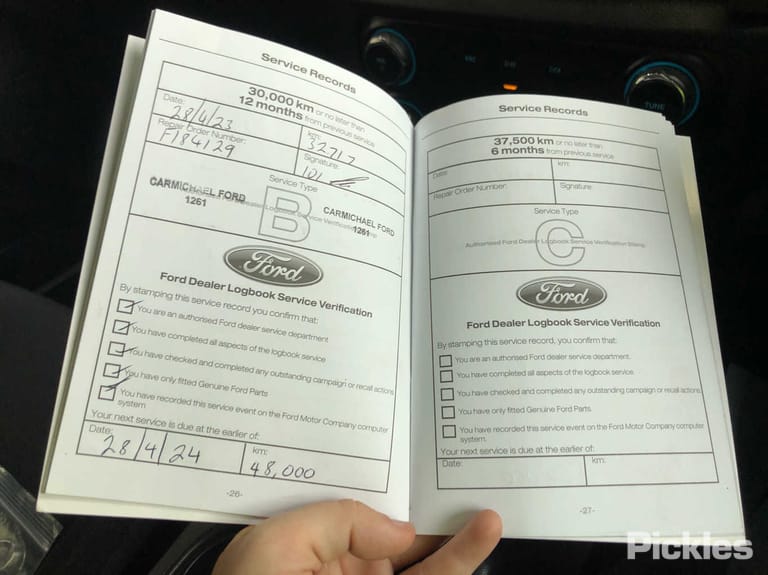 Service Records
30,000 km or no later than
12 months from previous service
Date:
28/4/23
km:
32717
Repair Order Number:
F184129
Signature:
101
Service Type
B
CARMICHAEL FORD
1261
CARMICHAEL FORD
1261
Ford
Ford Dealer Logbook Service Verification
By stamping this service record you confirm that:
You are an authorised Ford dealer service department
You have completed all aspects of the logbook service
You have checked and completed any outstanding campaign or recall actions
You have only fitted Genuine Ford Parts
You have recorded this service event on the Ford Motor Company computer
system.
Your next service is due at the earlier of:
Date:
28/4/24
km:
48,000
-26-
Service Records
37,500 km or no later than
6 months from previous service
Date:
km:
Repair Order Number:
Signature
Service Type
C
Authorised Ford Dealer Logbook Service Verification Stamp
Ford
Ford Dealer Logbook Service Verification
By stamping this service record, you confirm that:
You are an authorised Ford dealer service department.
You have completed all aspects of the logbook service.
You have checked and completed any outstanding campaign or recall actions
You have only fitted Genuine Ford Parts.
You have recorded this service event on the Ford Motor Company computer
system.
Your next service is due at the earlier of:
Date:
km:
-27-
TUNE
Pickles